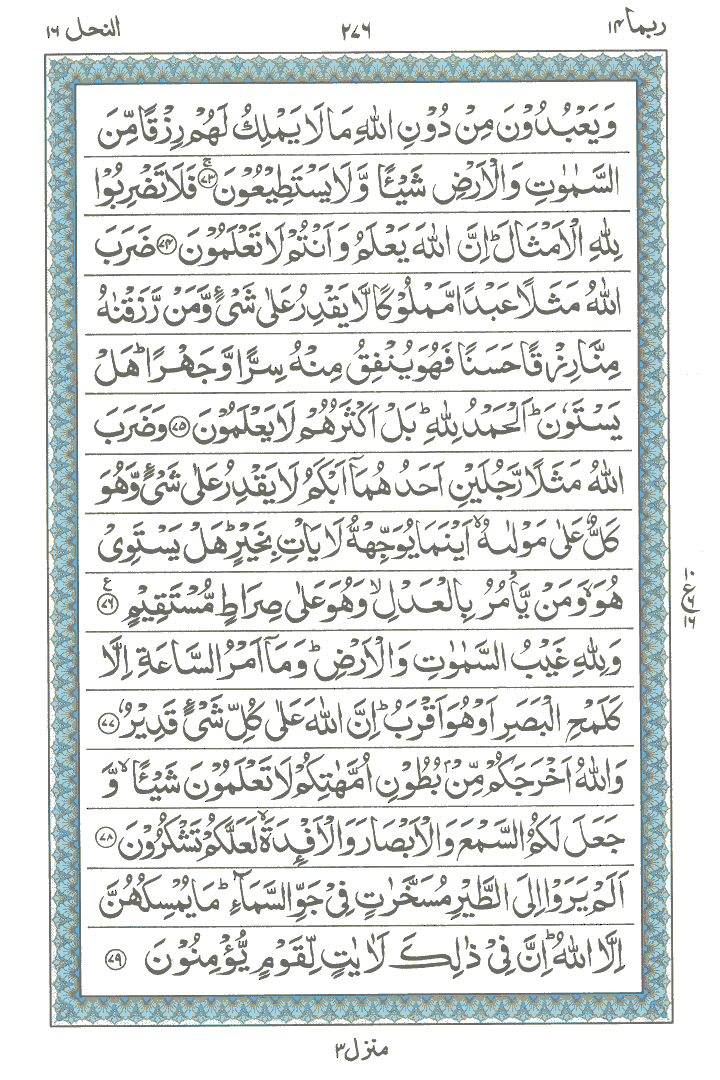 ربما ۱۴ ۲۷۶ النحل ۱۶
وَيَعْبُدُوْنَ مِنْ دُوْنِ اللّٰهِ مَا لَا يَمْلِكُ لَهُمْ رِزْقًا مِّنَ
السَّمٰوٰتِ وَالْاَرْضِ شَيْـًٔا وَّلَا يَسْتَطِيْعُوْنَ ۚ﴿۷۳﴾ فَلَا تَضْرِبُوْا
لِلّٰهِ الْاَمْثَالَ ؕ اِنَّ اللّٰهَ يَعْلَمُ وَاَنْتُمْ لَا تَعْلَمُوْنَ ﴿۷۴﴾ ضَرَبَ
اللّٰهُ مَثَلًا عَبْدًا مَّمْلُوْكًا لَّا يَقْدِرُ عَلٰى شَىْءٍ وَّمَنْ رَّزَقْنٰهُ
مِنَّا رِزْقًا حَسَنًا فَهُوَ يُنْفِقُ مِنْهُ سِرًّا وَّجَهْرًا ؕ هَلْ
يَسْتَوٗنَ ؕ اَلْحَمْدُ لِلّٰهِ ؕ بَلْ اَكْثَرُهُمْ لَا يَعْلَمُوْنَ ﴿۷۵﴾ وَضَرَبَ
اللّٰهُ مَثَلًا رَّجُلَيْنِ اَحَدُهُمَاۤ اَبْكَمُ لَا يَقْدِرُ عَلٰى شَىْءٍ وَّهُوَ
كَلٌّ عَلٰى مَوْلٰىهُ ۙ اَيْنَمَا يُوَجِّهْهُّ لَا يَاْتِ بِخَيْرٍ ؕ هَلْ يَسْتَوِىْ
هُوَ ۙ وَمَنْ يَّاْمُرُ بِالْعَدْلِ ۙ وَهُوَ عَلٰى صِرَاطٍ مُّسْتَقِيْمٍ ﴿۷۶﴾ ع
۱۰ ع ۶ ۱۶
وَلِلّٰهِ غَيْبُ السَّمٰوٰتِ وَالْاَرْضِ ؕ وَمَاۤ اَمْرُ السَّاعَةِ اِلَّا
كَلَمْحِ الْبَصَرِ اَوْ هُوَ اَقْرَبُ ؕ اِنَّ اللّٰهَ عَلٰى كُلِّ شَىْءٍ قَدِيْرٌ ﴿۷۷﴾
وَاللّٰهُ اَخْرَجَكُمْ مِّنْۢ بُطُوْنِ اُمَّهٰتِكُمْ لَا تَعْلَمُوْنَ شَيْـًٔا ۙ وَّ
جَعَلَ لَكُمُ السَّمْعَ وَالْاَبْصَارَ وَالْاَفْـِٕدَةَ ۙ لَعَلَّكُمْ تَشْكُرُوْنَ ﴿۷۸﴾
اَلَمْ يَرَوْا اِلَى الطَّيْرِ مُسَخَّرٰتٍ فِىْ جَوِّ السَّمَآءِ ؕ مَا يُمْسِكُهُنَّ
اِلَّا اللّٰهُ ؕ اِنَّ فِىْ ذٰلِكَ لَاٰيٰتٍ لِّقَوْمٍ يُّؤْمِنُوْنَ ﴿۷۹﴾
منزل ۳